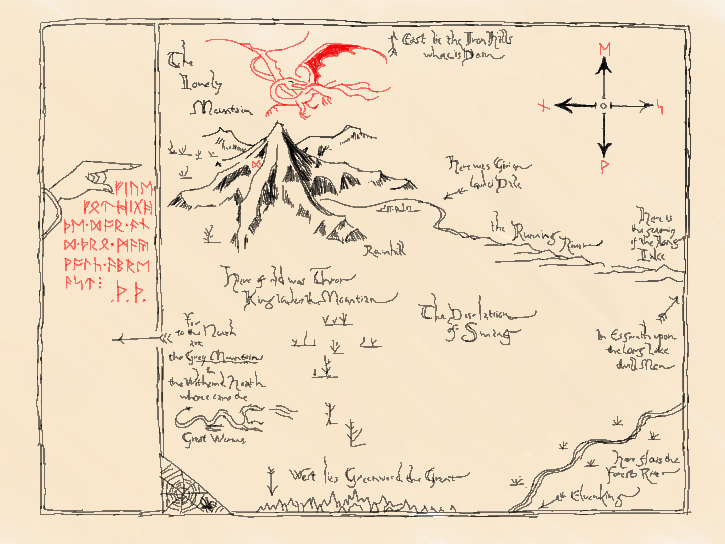 The
Lonely
Mountain
East lie the Iron Hills
where is Dain
ᛗ
ᚾ
ᛋ
ᚹ
Here was Girion
lord in Dale
ᚠᛁᚢᛖ
ᚠᚩᛏ·ᚻᛁᚷᚻ
ᚦᛖ·ᛞᚩᚱ·ᚪᚾ
ᛞ·ᚦᚱᛖ·ᛗᚪᚣ
ᚹᚪᛚᚳ·ᚪᛒᚱᛖ
ᚪᛋᛏ:
.ᚦ.ᚦ.
ᛞ
the Running River
Here is
the
of the Long
Lake
Here of old was Thror
King under the Mountain
The Desolation
of Smaug
Far
to the North
are
the Grey Mountains
&
the Withered Heath
whence came the
Great Worms
In Esgaroth upon
the Long Lake
dwell Men
Here flows the
Forest River
Elvenking
West lies Greenwood the Great